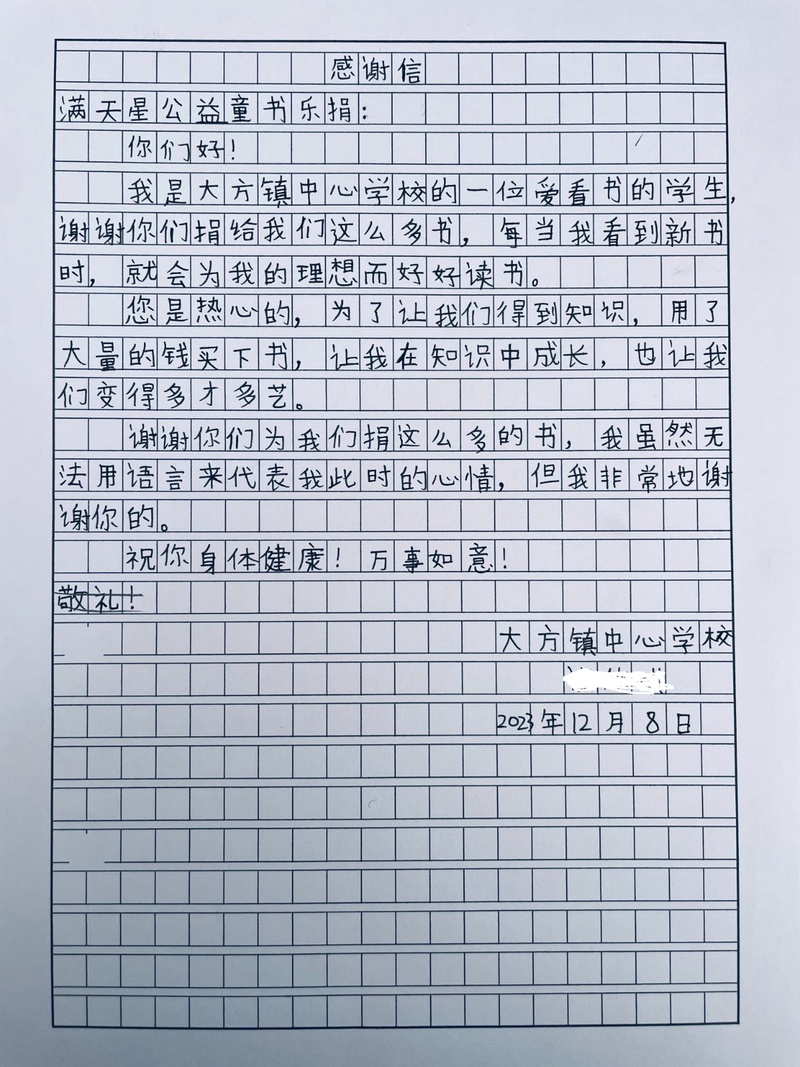 感谢信
满天星公益童书乐捐：
你们好！
我是大方镇中心学校的一位爱看书的学生，
谢谢你们捐给我们这么多书，每当我看到新书
时，就会为我的理想而好好读书。
您是热心的，为了让我们得到知识，用了
大量的钱买下书，让我在知识中成长，也让我
们变得多才多艺。
谢谢你们为我们捐这么多的书，我虽然无
法用语言来代表我此时的心情，但我非常地谢
谢你的。
祝你身体健康！万事如意！
敬礼！
大方镇中心学校
2023年12月8日